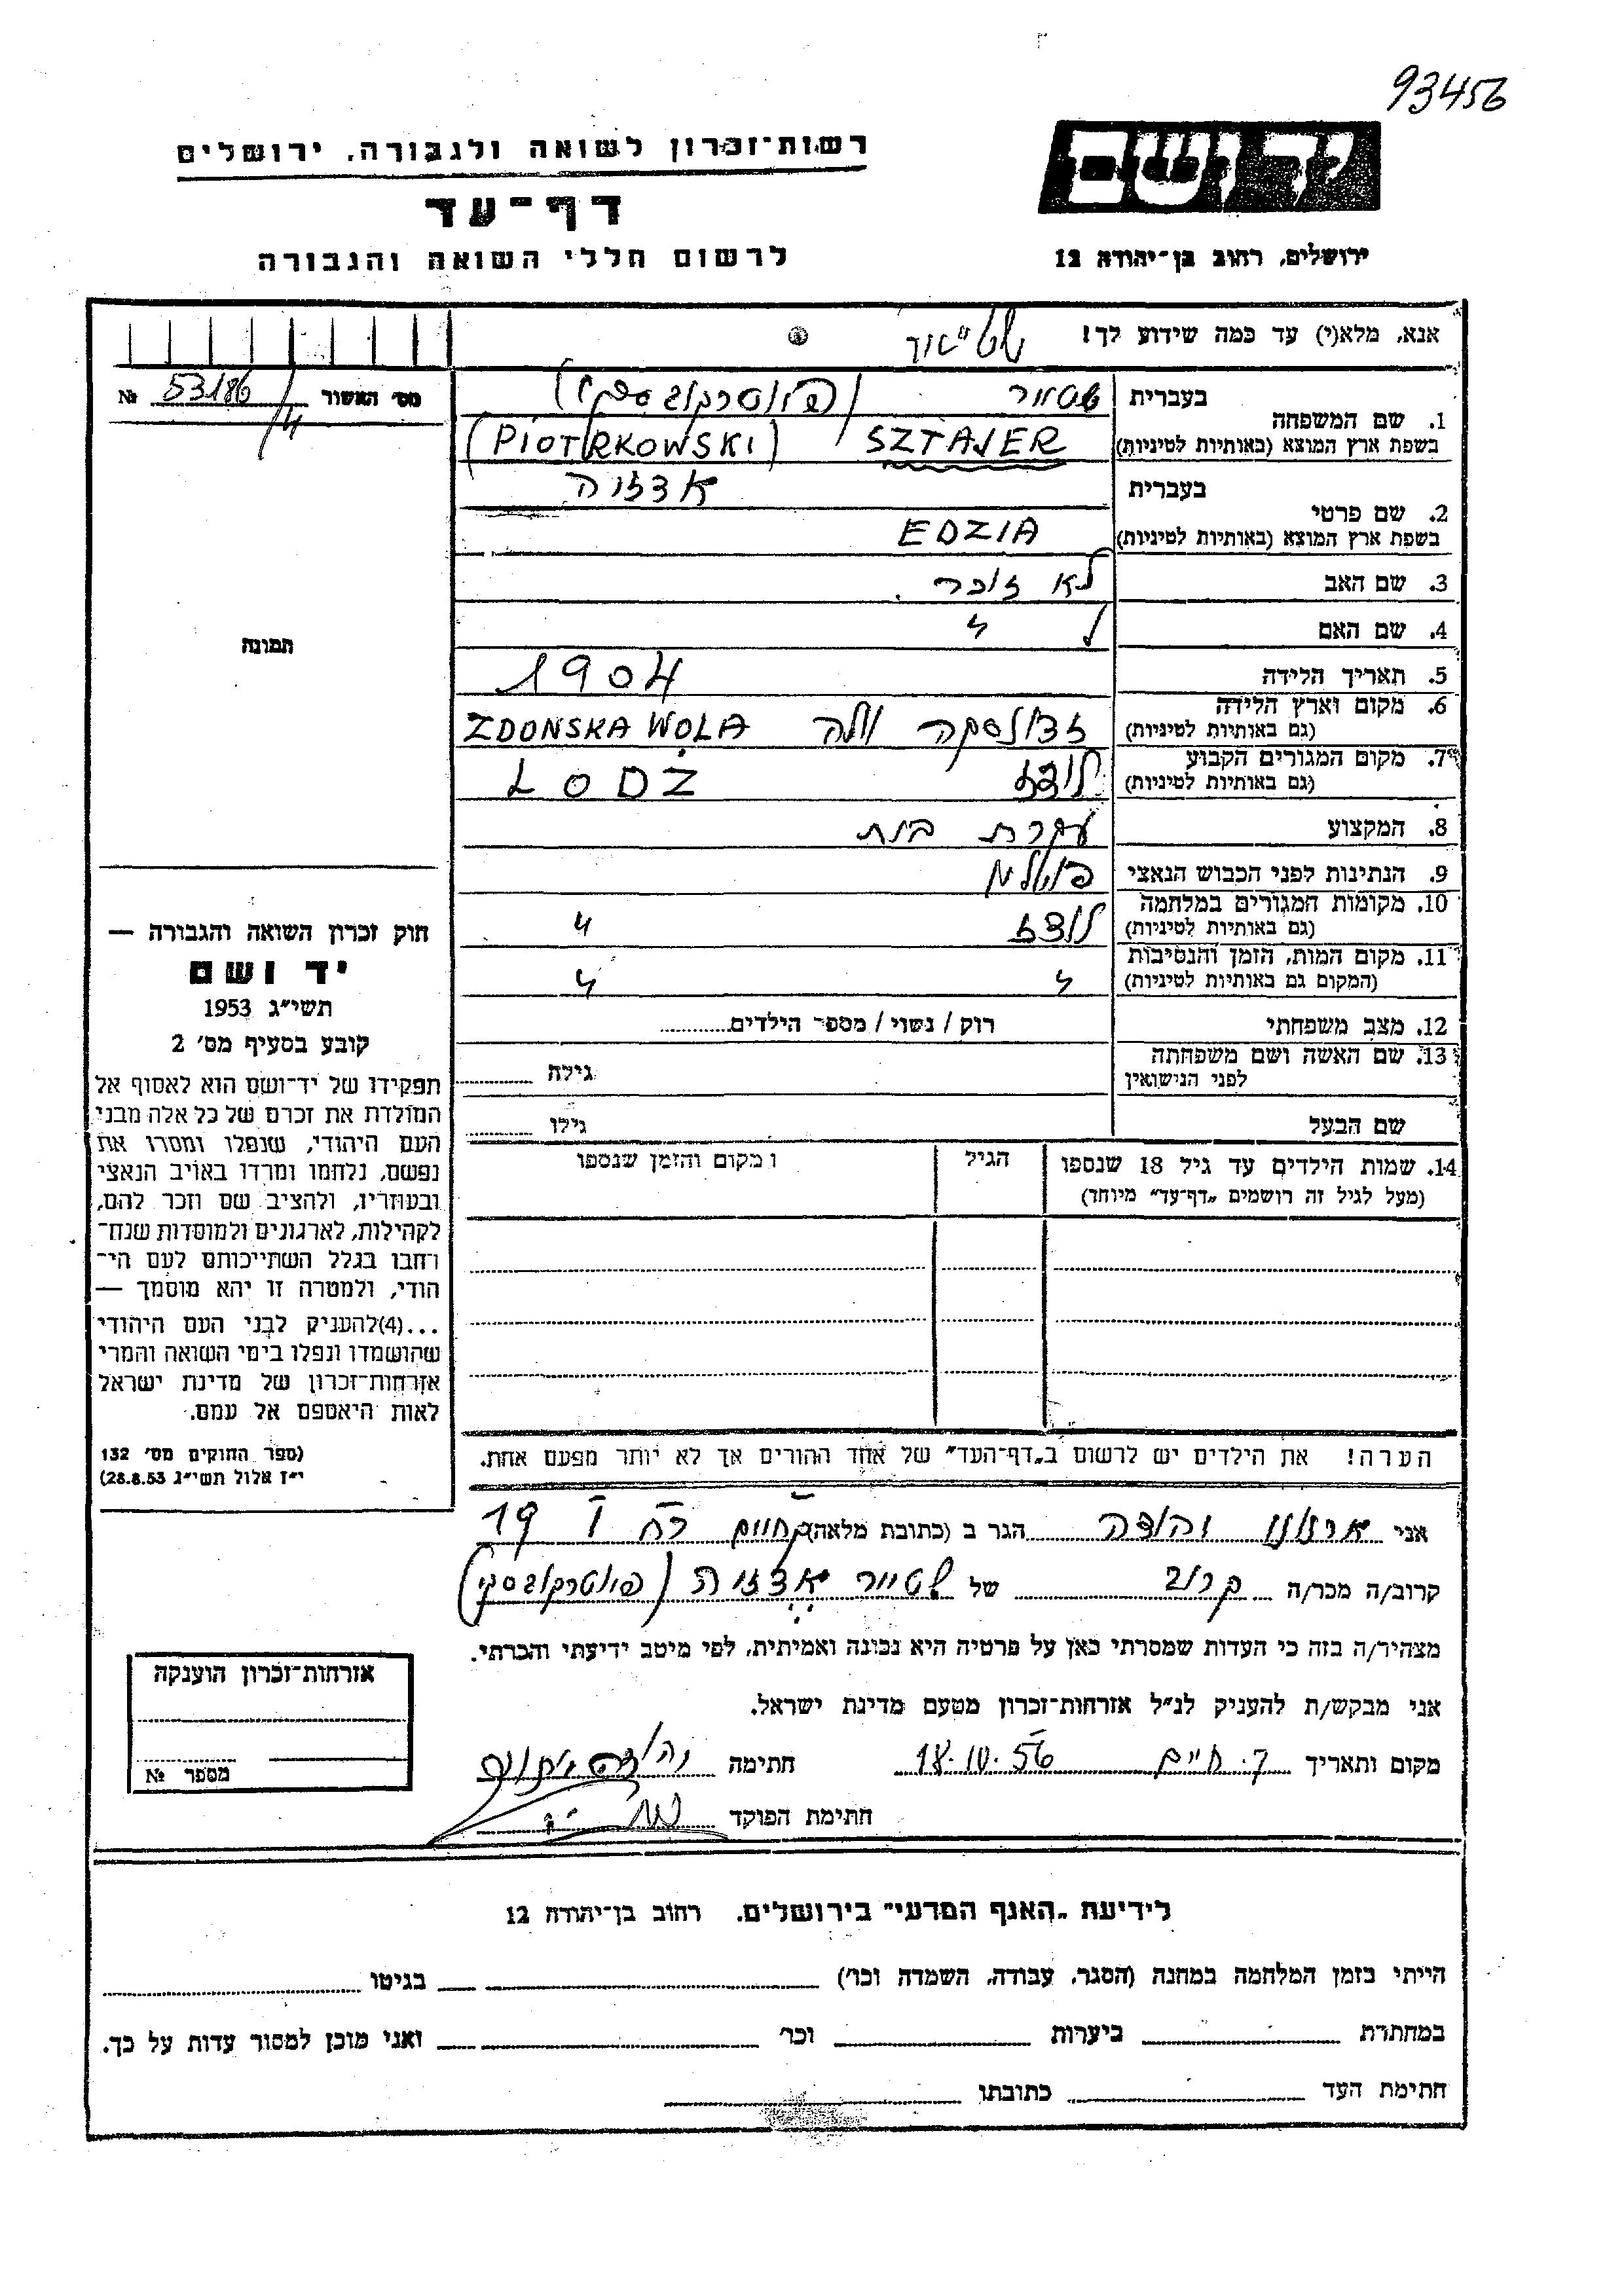 93456
רשות־זכרון לשואה ולגבורה, ירושלים
יד ושם
דף־עד
לרשום חללי השואה והגבורה
ירושלים, רחוב בן־יהודה 12
אנא, מלא(י) עד כמה שידוע לך!
מס׳ האשור 53186/4 №
1. שם המשפחה
בעברית שטייר (פיוטרקובסקי)
בשפת ארץ המוצא (באותיות לטיניות) SZTAJER (PIOTRKOWSKI)
2. שם פרטי
בעברית אדזיה
בשפת ארץ המוצא (באותיות לטיניות) EDZIA
3. שם האב לא זוכר.
4. שם האם ל "
5. תאריך הלידה 1904
6. מקום וארץ הלידה
(גם באותיות לטיניות) זדונסקה וולה ZDONSKA WOLA
7. מקום המגורים הקבוע
(גם באותיות לטיניות) לודז LODŻ
8. המקצוע עקרת בית
9. הנתינות לפני הכבוש הנאצי פולנית
10. מקומות המגורים במלחמה
(גם באותיות לטיניות) לודז "
11. מקום המות, הזמן והנסיבות
(המקום גם באותיות לטיניות) " "
12. מצב משפחתי רוק / נשוי / מספר הילדים
13. שם האשה ושם משפחתה
לפני הנישואין גילה
שם הבעל גילו
14. שמות הילדים עד גיל 18 שנספו
(מעל לגיל זה רושמים „דף־עד״ מיוחד)
הגיל
מקום והזמן שנספו
הערה! את הילדים יש לרשום ב„דף־העד״ של אחד ההורים אך לא יותר מפעם אחת.
תמונה
חוק זכרון השואה והגבורה —
יד ושם
תשי״ג 1953
קובע בסעיף מס׳ 2
תפקידו של יד־ושם הוא לאסוף אל
המולדת את זכרם של כל אלה מבני
העם היהודי, שנפלו ומסרו את
נפשם, נלחמו ומרדו באויב הנאצי
ובעוזריו, ולהציב שם וזכר להם,
לקהילות, לארגונים ולמוסדות שנח־
רחבו בגלל השתייכותם לעם הי־
הודי, ולמטרה זו יהא מוסמך —
...(4)להעניק לבני העם היהודי
שהושמדו ונפלו בימי השואה והמרי
אזרחות־זכרון של מדינת ישראל
לאות היאספם אל עמם.
(ספר החוקים מס׳ 132
י״ז אלול תשי״ג 28.8.53)
אני יהודה הגר ב (כתובת מלאה) ק. חיים רח ו 19
קרוב/ה מכר/ה קרוב של שטייר אדזיה (פיוטרקובסקי)
מצהיר/ה בזה כי העדות שמסרתי כאן על פרטיה היא נכונה ואמיתית, לפי מיטב ידיעתי והכרתי.
אני מבקש/ת להעניק לנ״ל אזרחות־זכרון מטעם מדינת ישראל.
מקום ותאריך ק. חיים 18.10.56 חתימה
חתימת הפוקד
אזרחות־זכרון הוענקה
מספר №
לידיעת „האגף המדעי״ בירושלים, רחוב בן־יהודה 12
הייתי בזמן המלחמה במחנה (הסגר, עבודה, השמדה וכו׳) בגיטו
במחתרת ביערות וכו׳ ואני מוכן למסור עדות על כך.
חתימת העד כתובתו